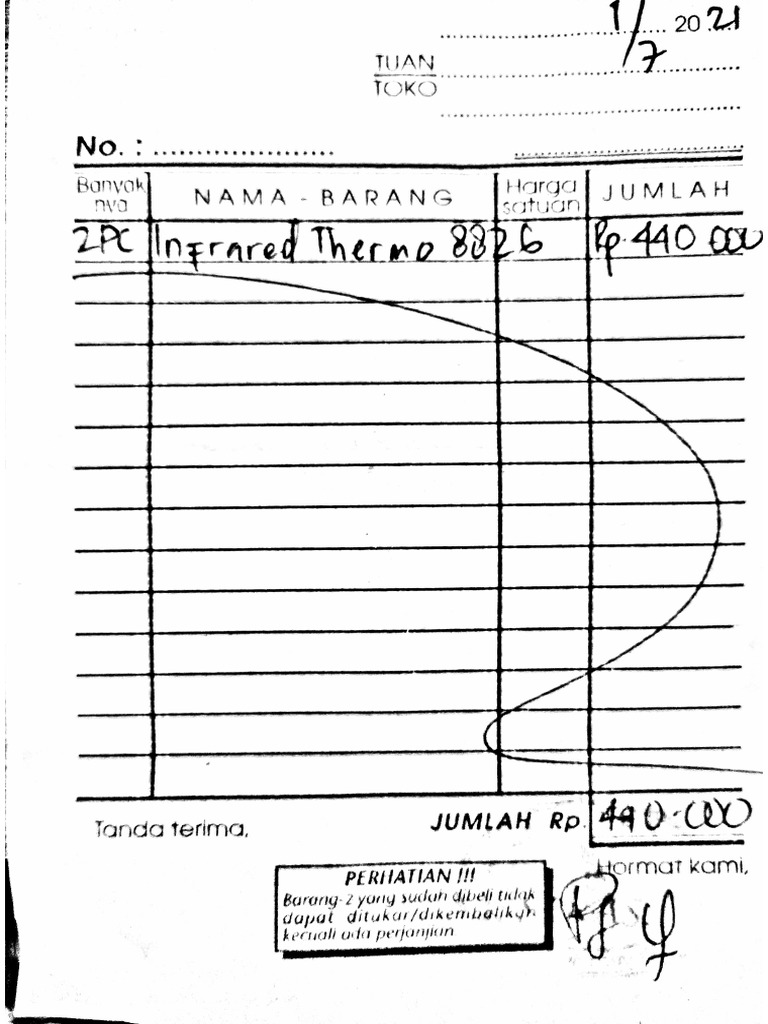 1/7 2021
TUAN
TOKO
No. :
Banyak nya NAMA - BARANG Harga satuan JUMLAH
2 PC Infrared Thermo 8826 Rp. 440 000
Tanda terima, JUMLAH Rp. 440.000
Hormat kami,
PERHATIAN !!!
Barang-2 yang sudah dibeli tidak
dapat ditukar/dikembalikan
kecuali ada perjanjian